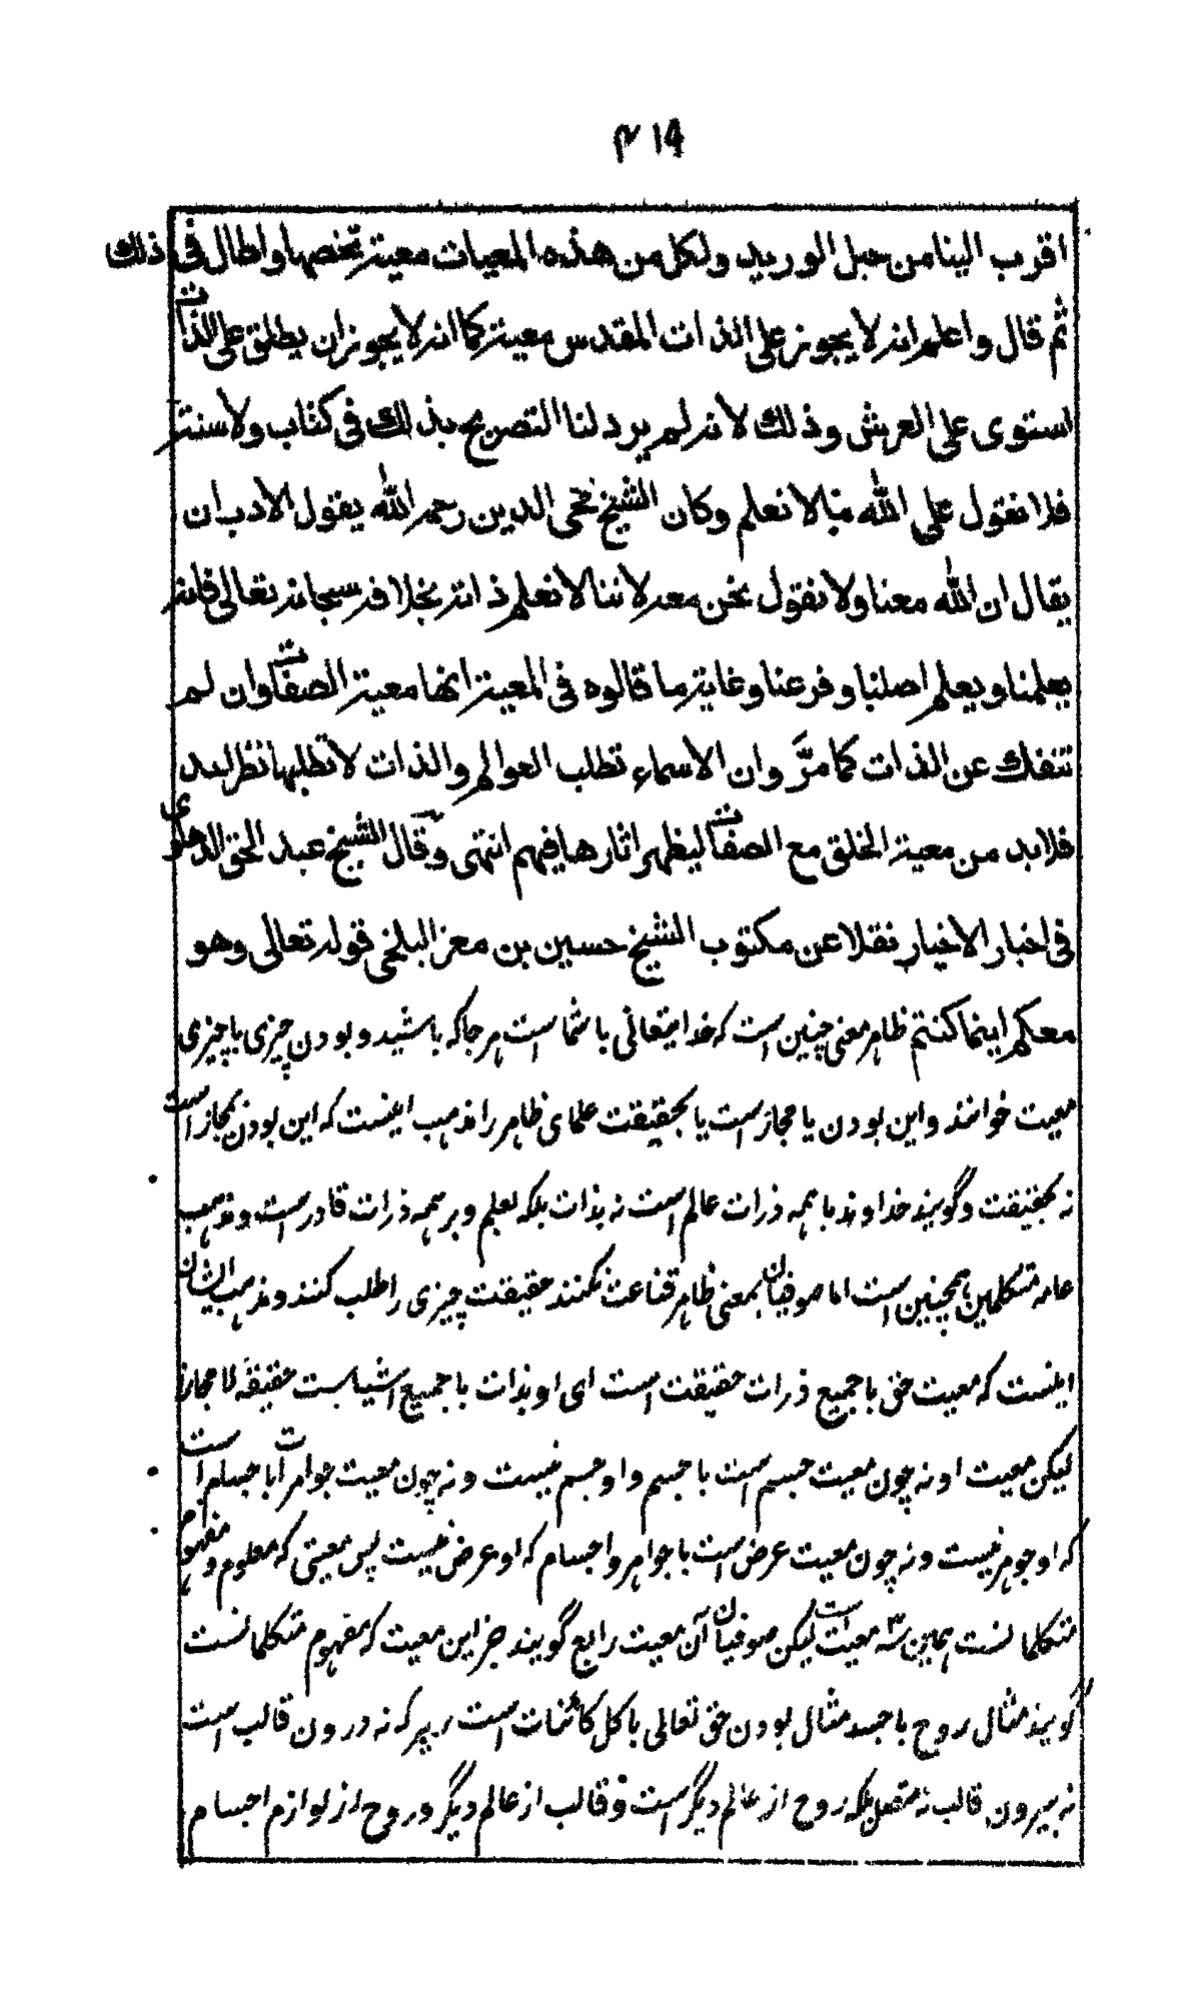 ۴۱۹
اقرب الینا من حبل الورید ولکل من هذه المعیات معیة تخصها واطال فی ذلك
ثم قال واعلم انه لا یجوز علی الذات المقدس معیة کما انه لا یجوز ان یطلق علی الذات
استوی علی العرش وذلك لانه لم یرد لنا التصریح بذلك فی کتاب ولا سنة
فلا نقول علی الله ما لا نعلم وکان الشیخ محی الدین رحمه الله یقول الادب ان
یقال ان الله معنا ولا نقول نحن معه لاننا لا نعلم ذاته بخلافه سبحانه تعالی فانه
یعلمنا ویعلم اصلنا وفرعنا وغایة ما قالوه فی المعیة انها معیة الصفات وان لم
تنفك عن الذات کما مرّ وان الاسماء تطلب العوالم والذات لا تطلبها نظر الیه
فلا بد من معیة الخلق مع الصفات لیظهر اثارها فیهم انتهی وقال الشیخ عبد الحق الدهلوی
فی اخبار الاخیار نقلا عن مکتوب الشیخ حسین بن معز البلخی قوله تعالی وهو
معکم اینما کنتم ظاهر معنی چنین است که خدایتعالی با شما است هر جا که باشید و بودن چیزی با چیزی
معیت خوانند و این بودن یا مجاز است یا بحقیقت علمای ظاهر را مذهب اینست که این بودن مجاز است
نه بحقیقت و گویند خداوند با همه ذرات عالم است نه بذات بلکه بعلم و بر همه ذرات قادر است و مذهب
عامه متکلمین همچنین است اما صوفیان بمعنی ظاهر قناعت نکنند حقیقت چیزی را طلب کنند و مذهب ایشان
اینست که معیت حق با جمیع ذرات حقیقت است ای او بذات با جمیع اشیاست حقیقة لا مجازا
لیکن معیت او نه چون معیت جسم است با جسم و او جسم نیست و نه چون معیت جواهرات با اجسام است
که او جوهر نیست و نه چون معیت عرض است با جواهر و اجسام که او عرض نیست پس معیتی که معلوم و مفهوم
متکلمانست همین سه معیات است لیکن صوفیان آن معیت رابع گویند جز این معیت که مفهوم متکلمانست
گویند مثال روح با جسد مثال بودن حق تعالی با کل کائنات است زیرا که نه درون قالب است
نه بیرون قالب نه متصل بلکه روح از عالم دیگر است و قالب از عالم دیگر و روح از لوازم اجسام